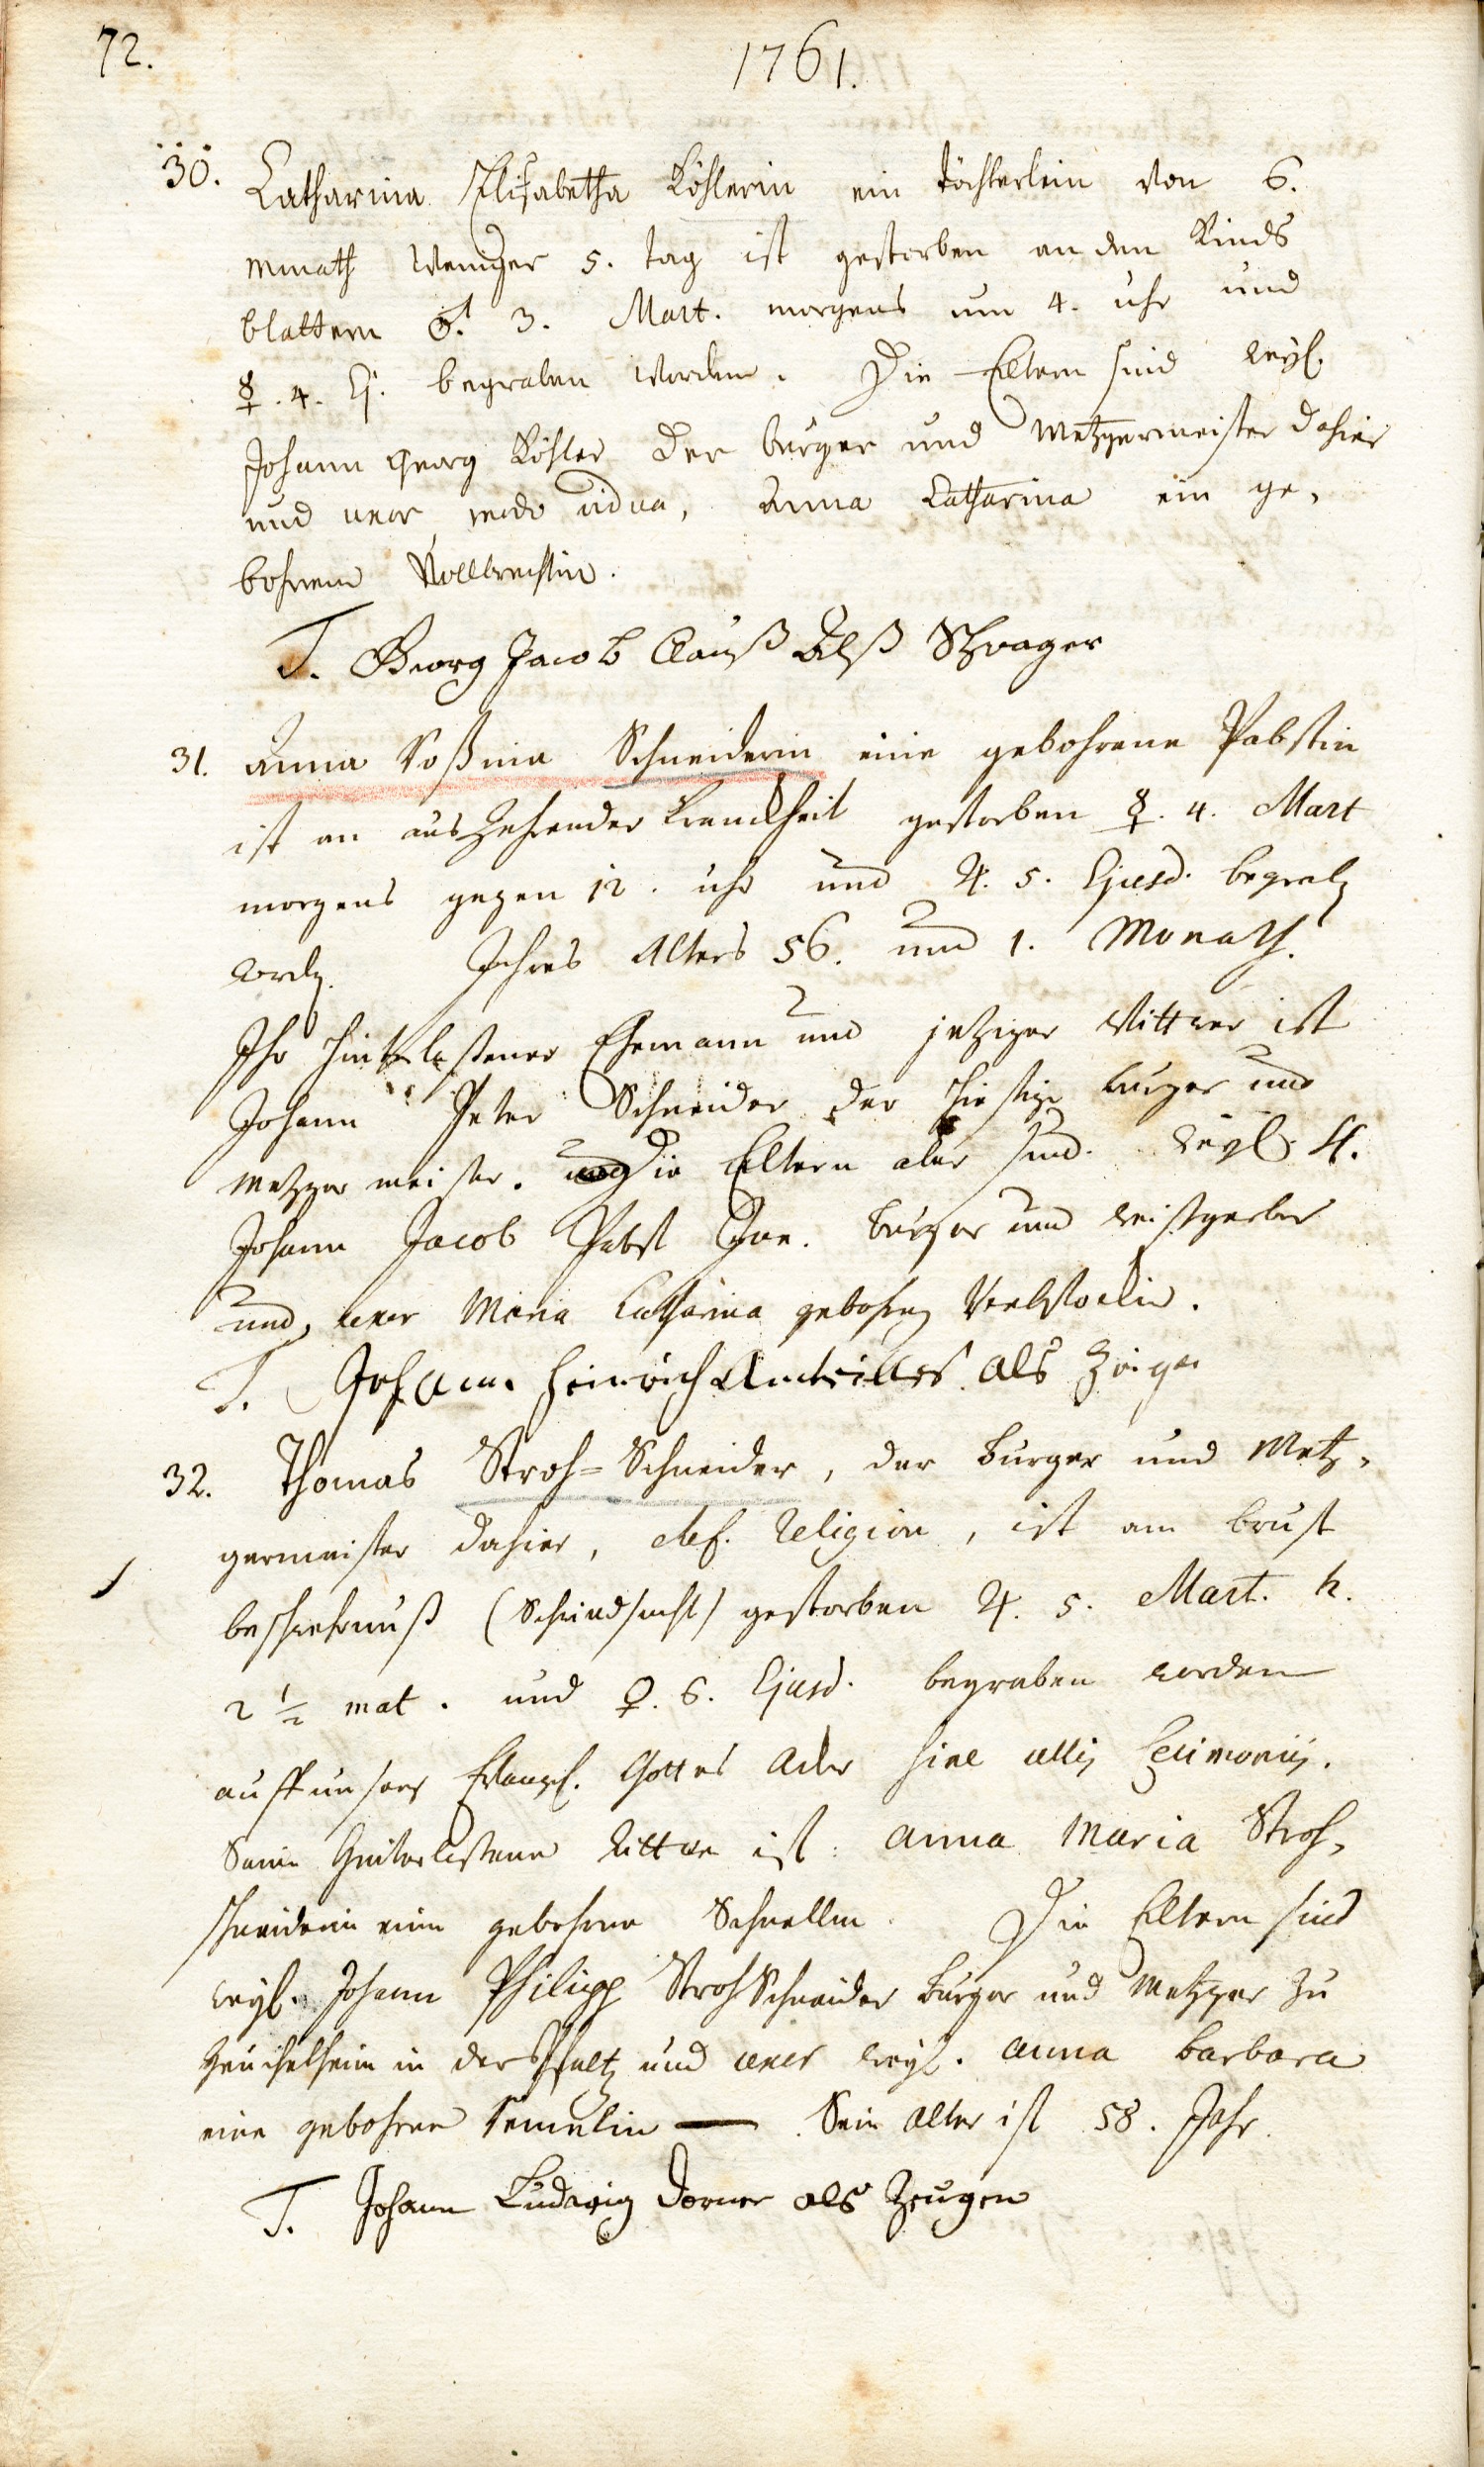 72.
1761.
30. Catharina Elisabetha Köhlerin ein Töchterlein von 6.
monath weniger 5. tag ist gestorben an den Kinds
blattern ♂. 3. Mart. morgens um 4. uhr und
☿. 4. Ej. begraben worden. Die Eltern sind weyl.
Johann Georg Köhler der burger und Metzgermeister dahier
und uxor modo vidua, Anna Catharina ein ge-
bohrene
T. Georg Jacob Clauß Alß Schwager
31. Anna Roßina Schneiderin eine gebohrene Pabstin
ist an auszehrender Kranckheit gestorben ☿. 4. Mart
morgens gegen 12. uhr und ♃. 5. Ejusd. begrab.
word. Ihres Alters 56. und 1. Monath.
Ihr hinterlaßener Ehemann und jetziger Wittwer ist
Johann Peter Schneider der hiesige burger und
Metzgermeister. Die Eltern aber sind weyl. H.
Johann Jacob Pabst burger und weißgerber
und uxor Maria Catharina gebohrn
T. Johann Heinrich als Zeige
32. Thomas Stroh=Schneider, der burger und Metz-
germeister dahier, Ref. Religion, ist am brust
beschwehrnuß (Schwindsucht) gestorben ♃. 5. Mart. h.
2 1/2 mat. und ♀. 6. Ejusd. begraben worden
auff unserm Evangel. Gottes Acker sine ullis Cerimoniis.
Seine hinterlaßene Wittwe ist: Anna Maria Stroh-
schneiderin eine gebohrne Schnellin. Die Eltern sind
weyl. Johann Philipp StrohSchneider burger und Metzger zu
Heuchelheim in der Pfaltz und uxor weyl. Anna Barbara
eine gebohrne — Sein Alter ist 58. Jahr.
T. Johann Ludwig Dorner als Zeugen